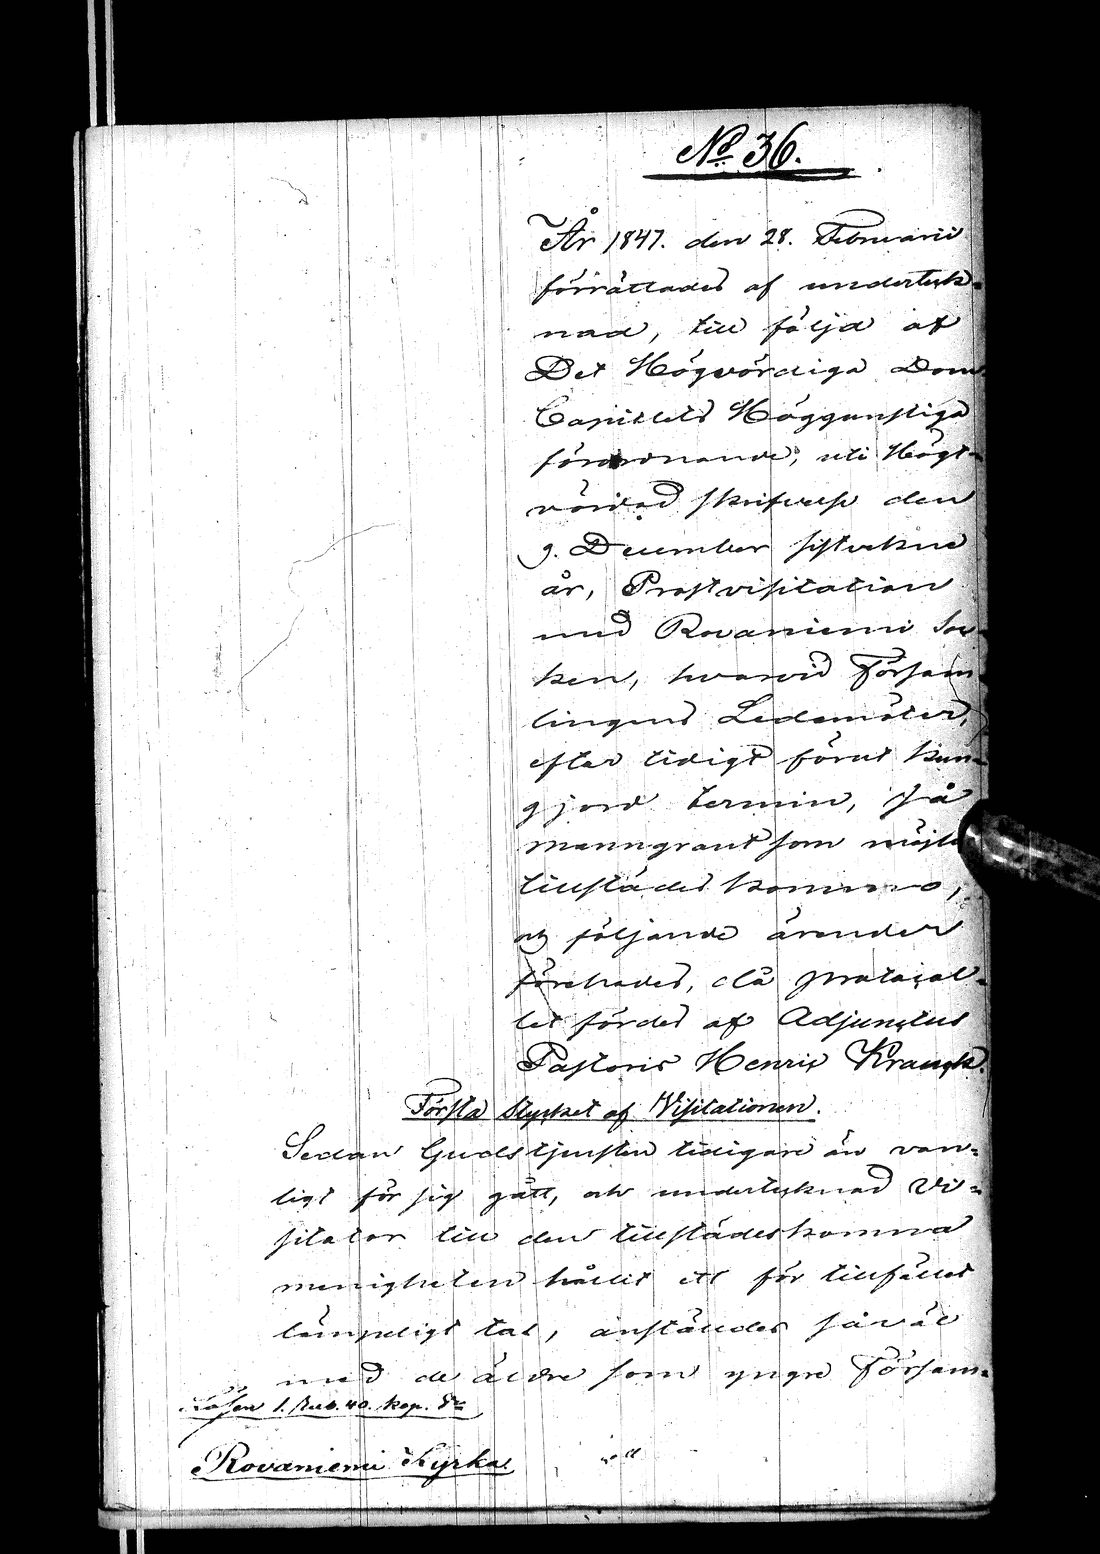 No 36.
År 1847. den 28. Februarii
förrättades af underteck-
nad, till följd af
Det Högvördiga Dom-
Capitlets Höggunstiga
förordnande, uti Högt-
vördad skrifvelse den
9. December sistvekne
år, Prostvisitation
med Rovaniemi Soc-
ken, hvarvid Försam-
lingens Ledamöter,
efter tidigt förut kun-
gjord termin, så
manngrant som möjl
tillstädes kommo,
och följande ärender
förehades, då protocol-
let fördes af Adjunctus
Pastoris Henric Kranck.
Första Stycket af Visitationen.
Sedan Gudstjensten tidigare än van-
ligt för sig gått, och undertecknad Vi-
sitator till den tillstädeskomna
menigheten hållit ett för tillfället
lämpeligt tal, anställdes såväl
med de äldre som yngre Försam-
Lösen 1. Rub. 40. kop. Sr
Rovaniemi Kyrka.